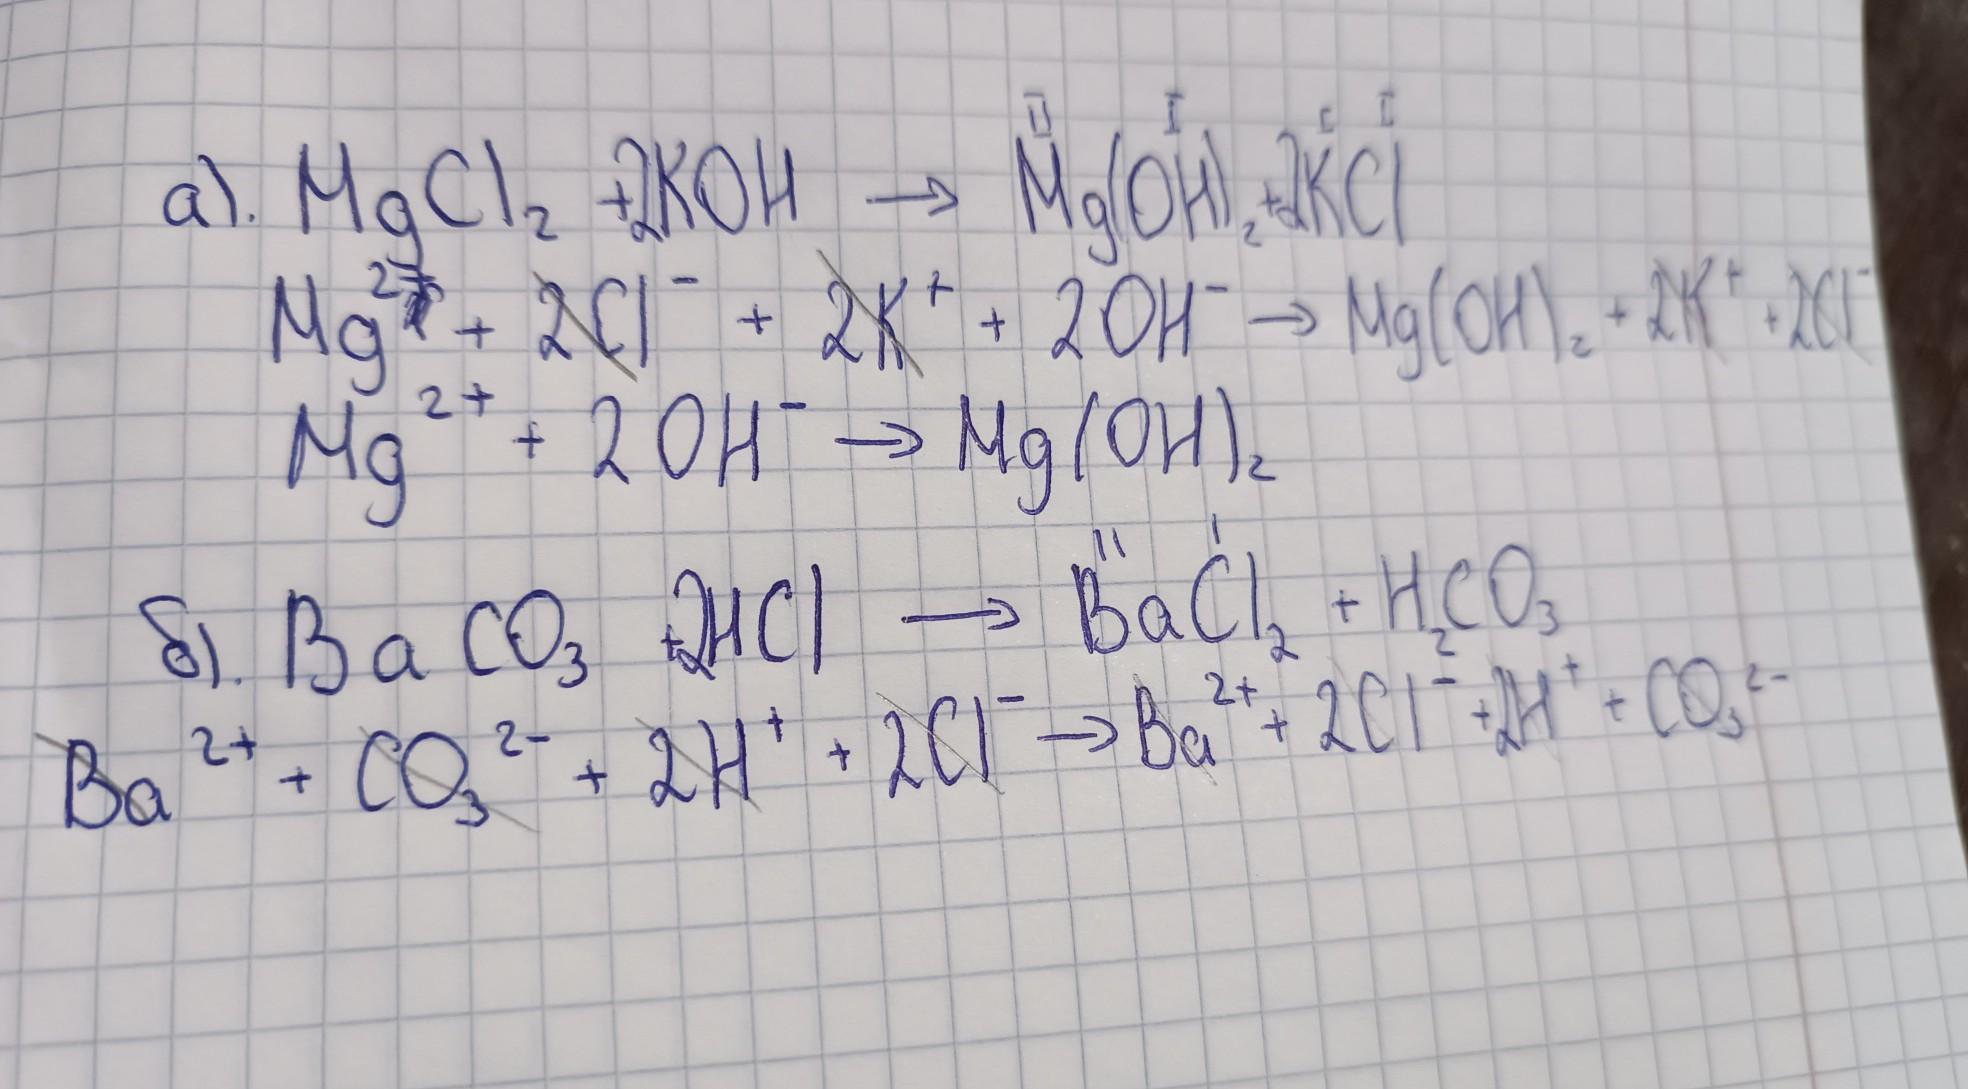 II I I I
а). MgCl₂ +2KOH → Mg(OH)₂+2KCl
Mg²⁺ + 2Cl⁻ + 2K⁺ + 2OH⁻ → Mg(OH)₂ + 2K⁺ + 2Cl⁻
Mg²⁺ + 2OH⁻ → Mg(OH)₂
II I
б). BaCO₃ +2HCl → BaCl₂ + H₂CO₃
Ba²⁺ + CO₃²⁻ + 2H⁺ + 2Cl⁻ → Ba²⁺ + 2Cl⁻ + 2H⁺ + CO₃²⁻